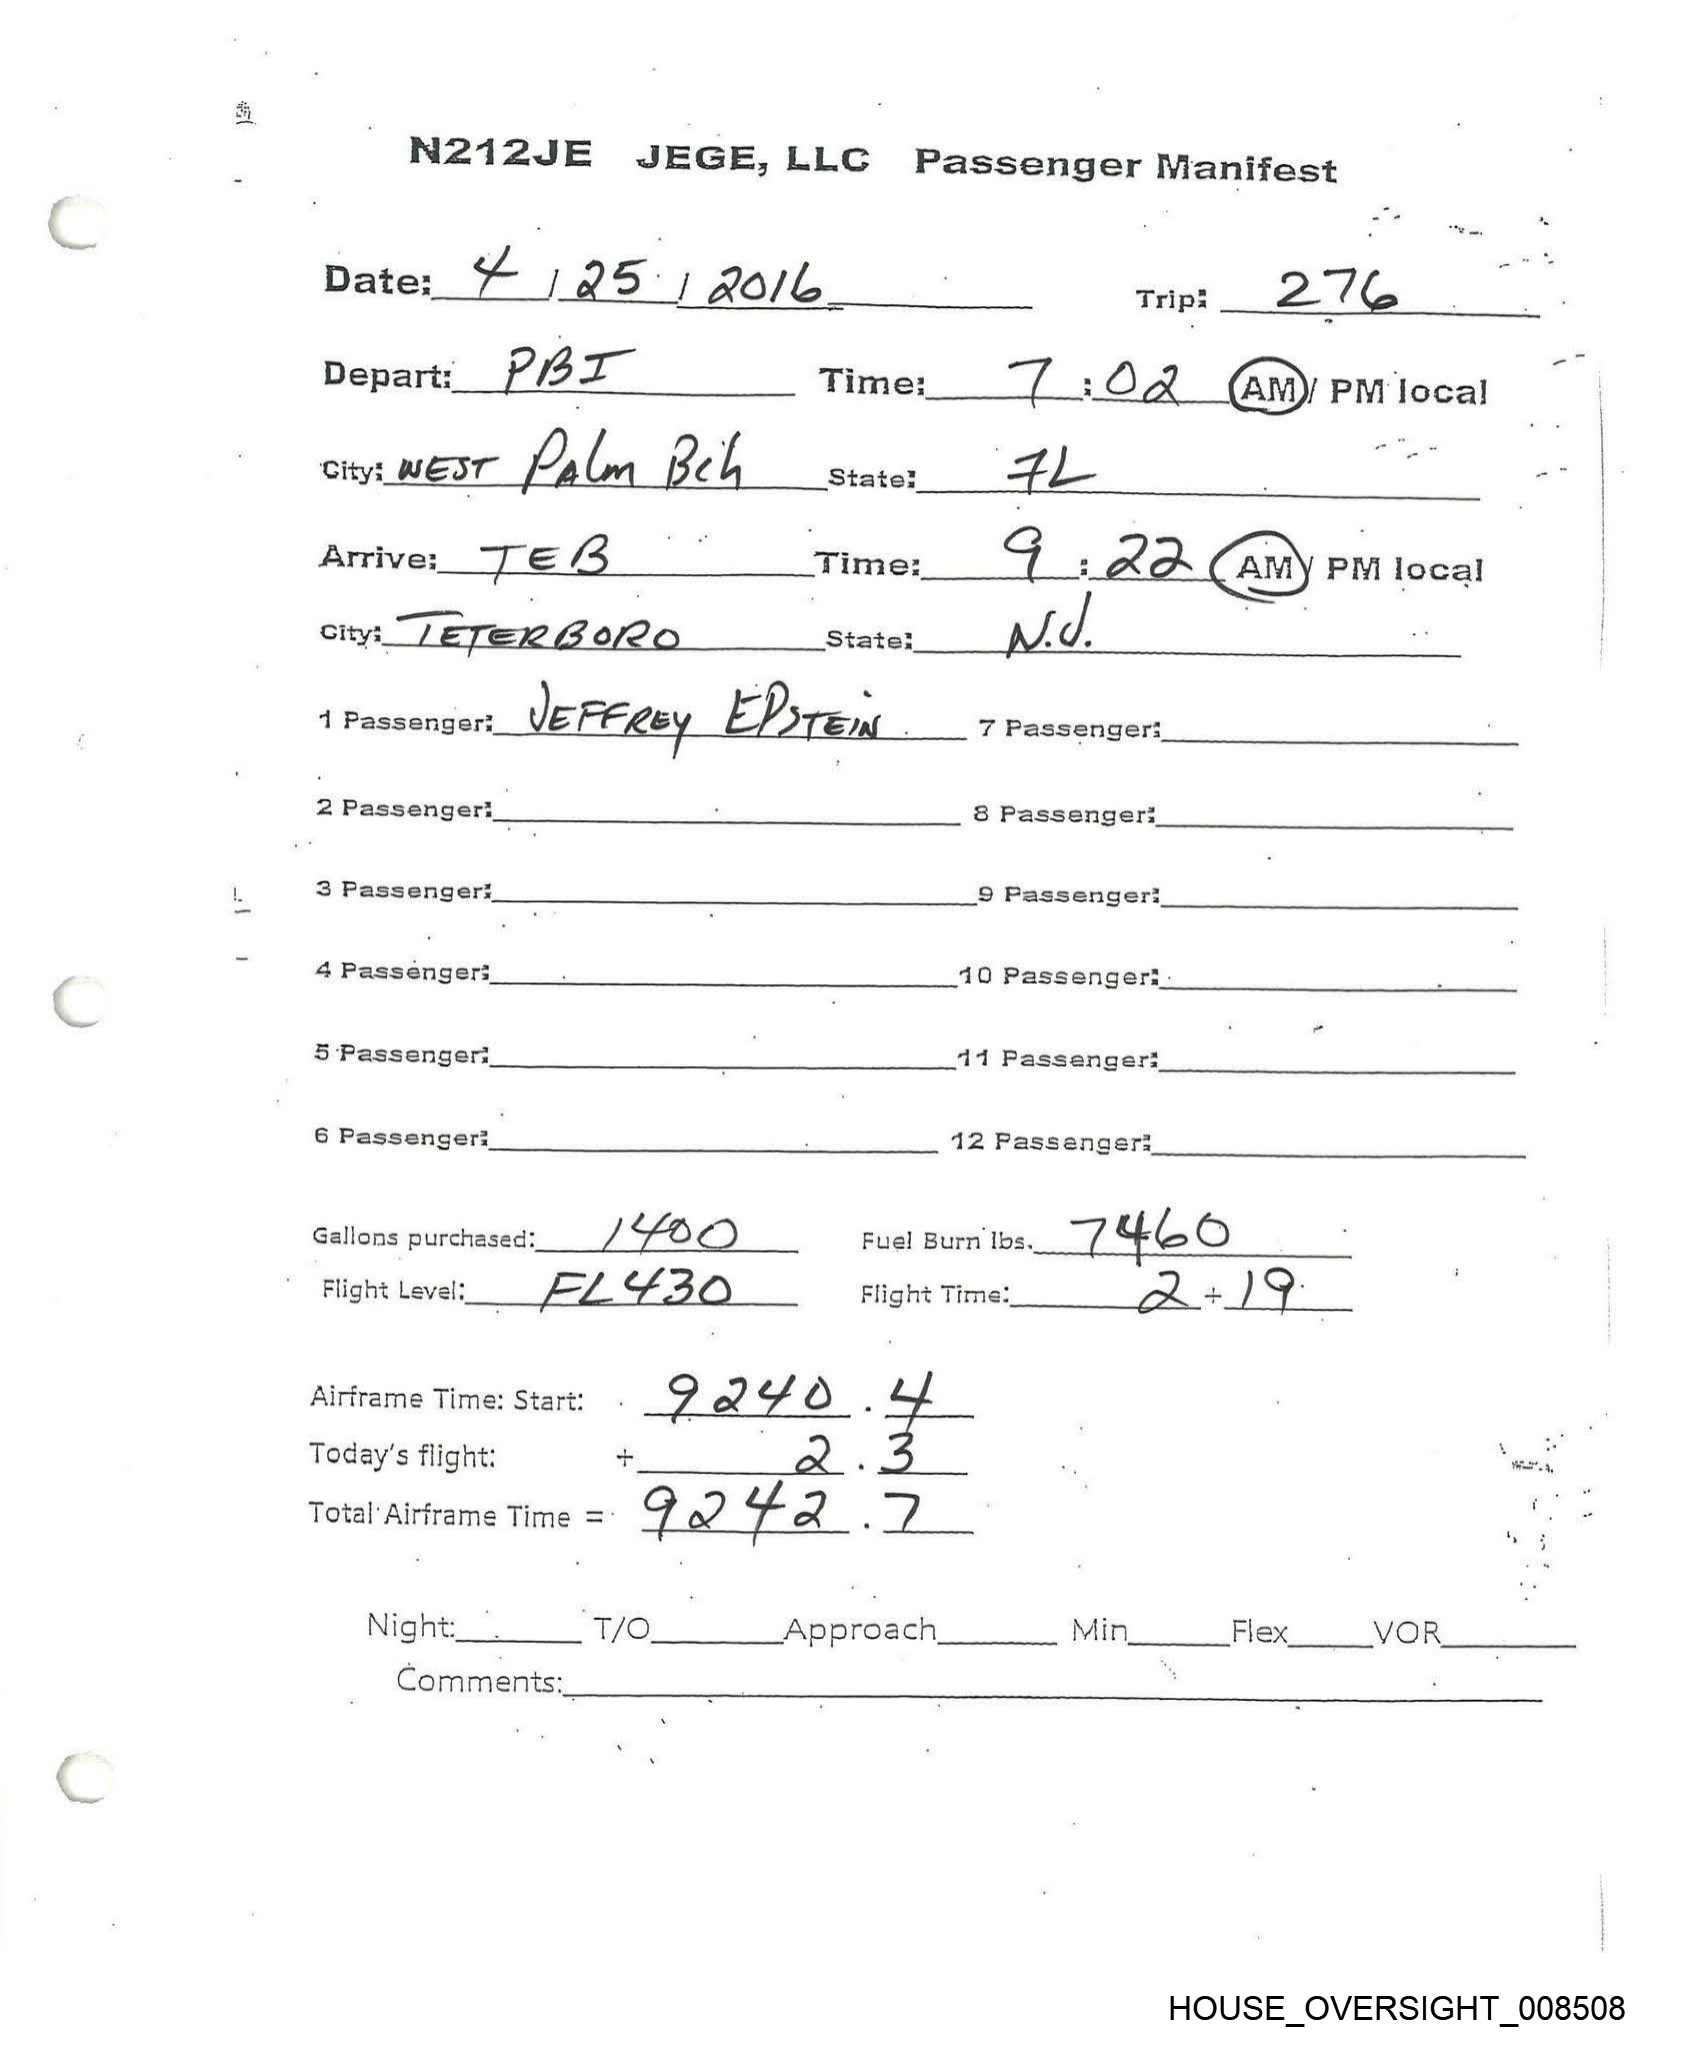 N212JE JEGE, LLC Passenger Manifest
Date: 4 / 25 / 2016 Trip: 276
Depart: PBI Time: 7 : 02 AM / PM local
City: WEST PAlm Bch State: FL
Arrive: TEB Time: 9 : 22 AM / PM local
City: TETERBORO State: N.J.
1 Passenger: JEFFREY EPSTEIN 7 Passenger:
2 Passenger: 8 Passenger:
3 Passenger: 9 Passenger:
4 Passenger: 10 Passenger:
5 Passenger: 11 Passenger:
6 Passenger: 12 Passenger:
Gallons purchased: 1400 Fuel Burn lbs. 7460
Flight Level: FL430 Flight Time: 2 + 19
Airframe Time: Start: 9240 . 4
Today's flight: + 2 . 3
Total Airframe Time = 9242 . 7
Night: T/O Approach Min Flex VOR
Comments:
HOUSE_OVERSIGHT_008508